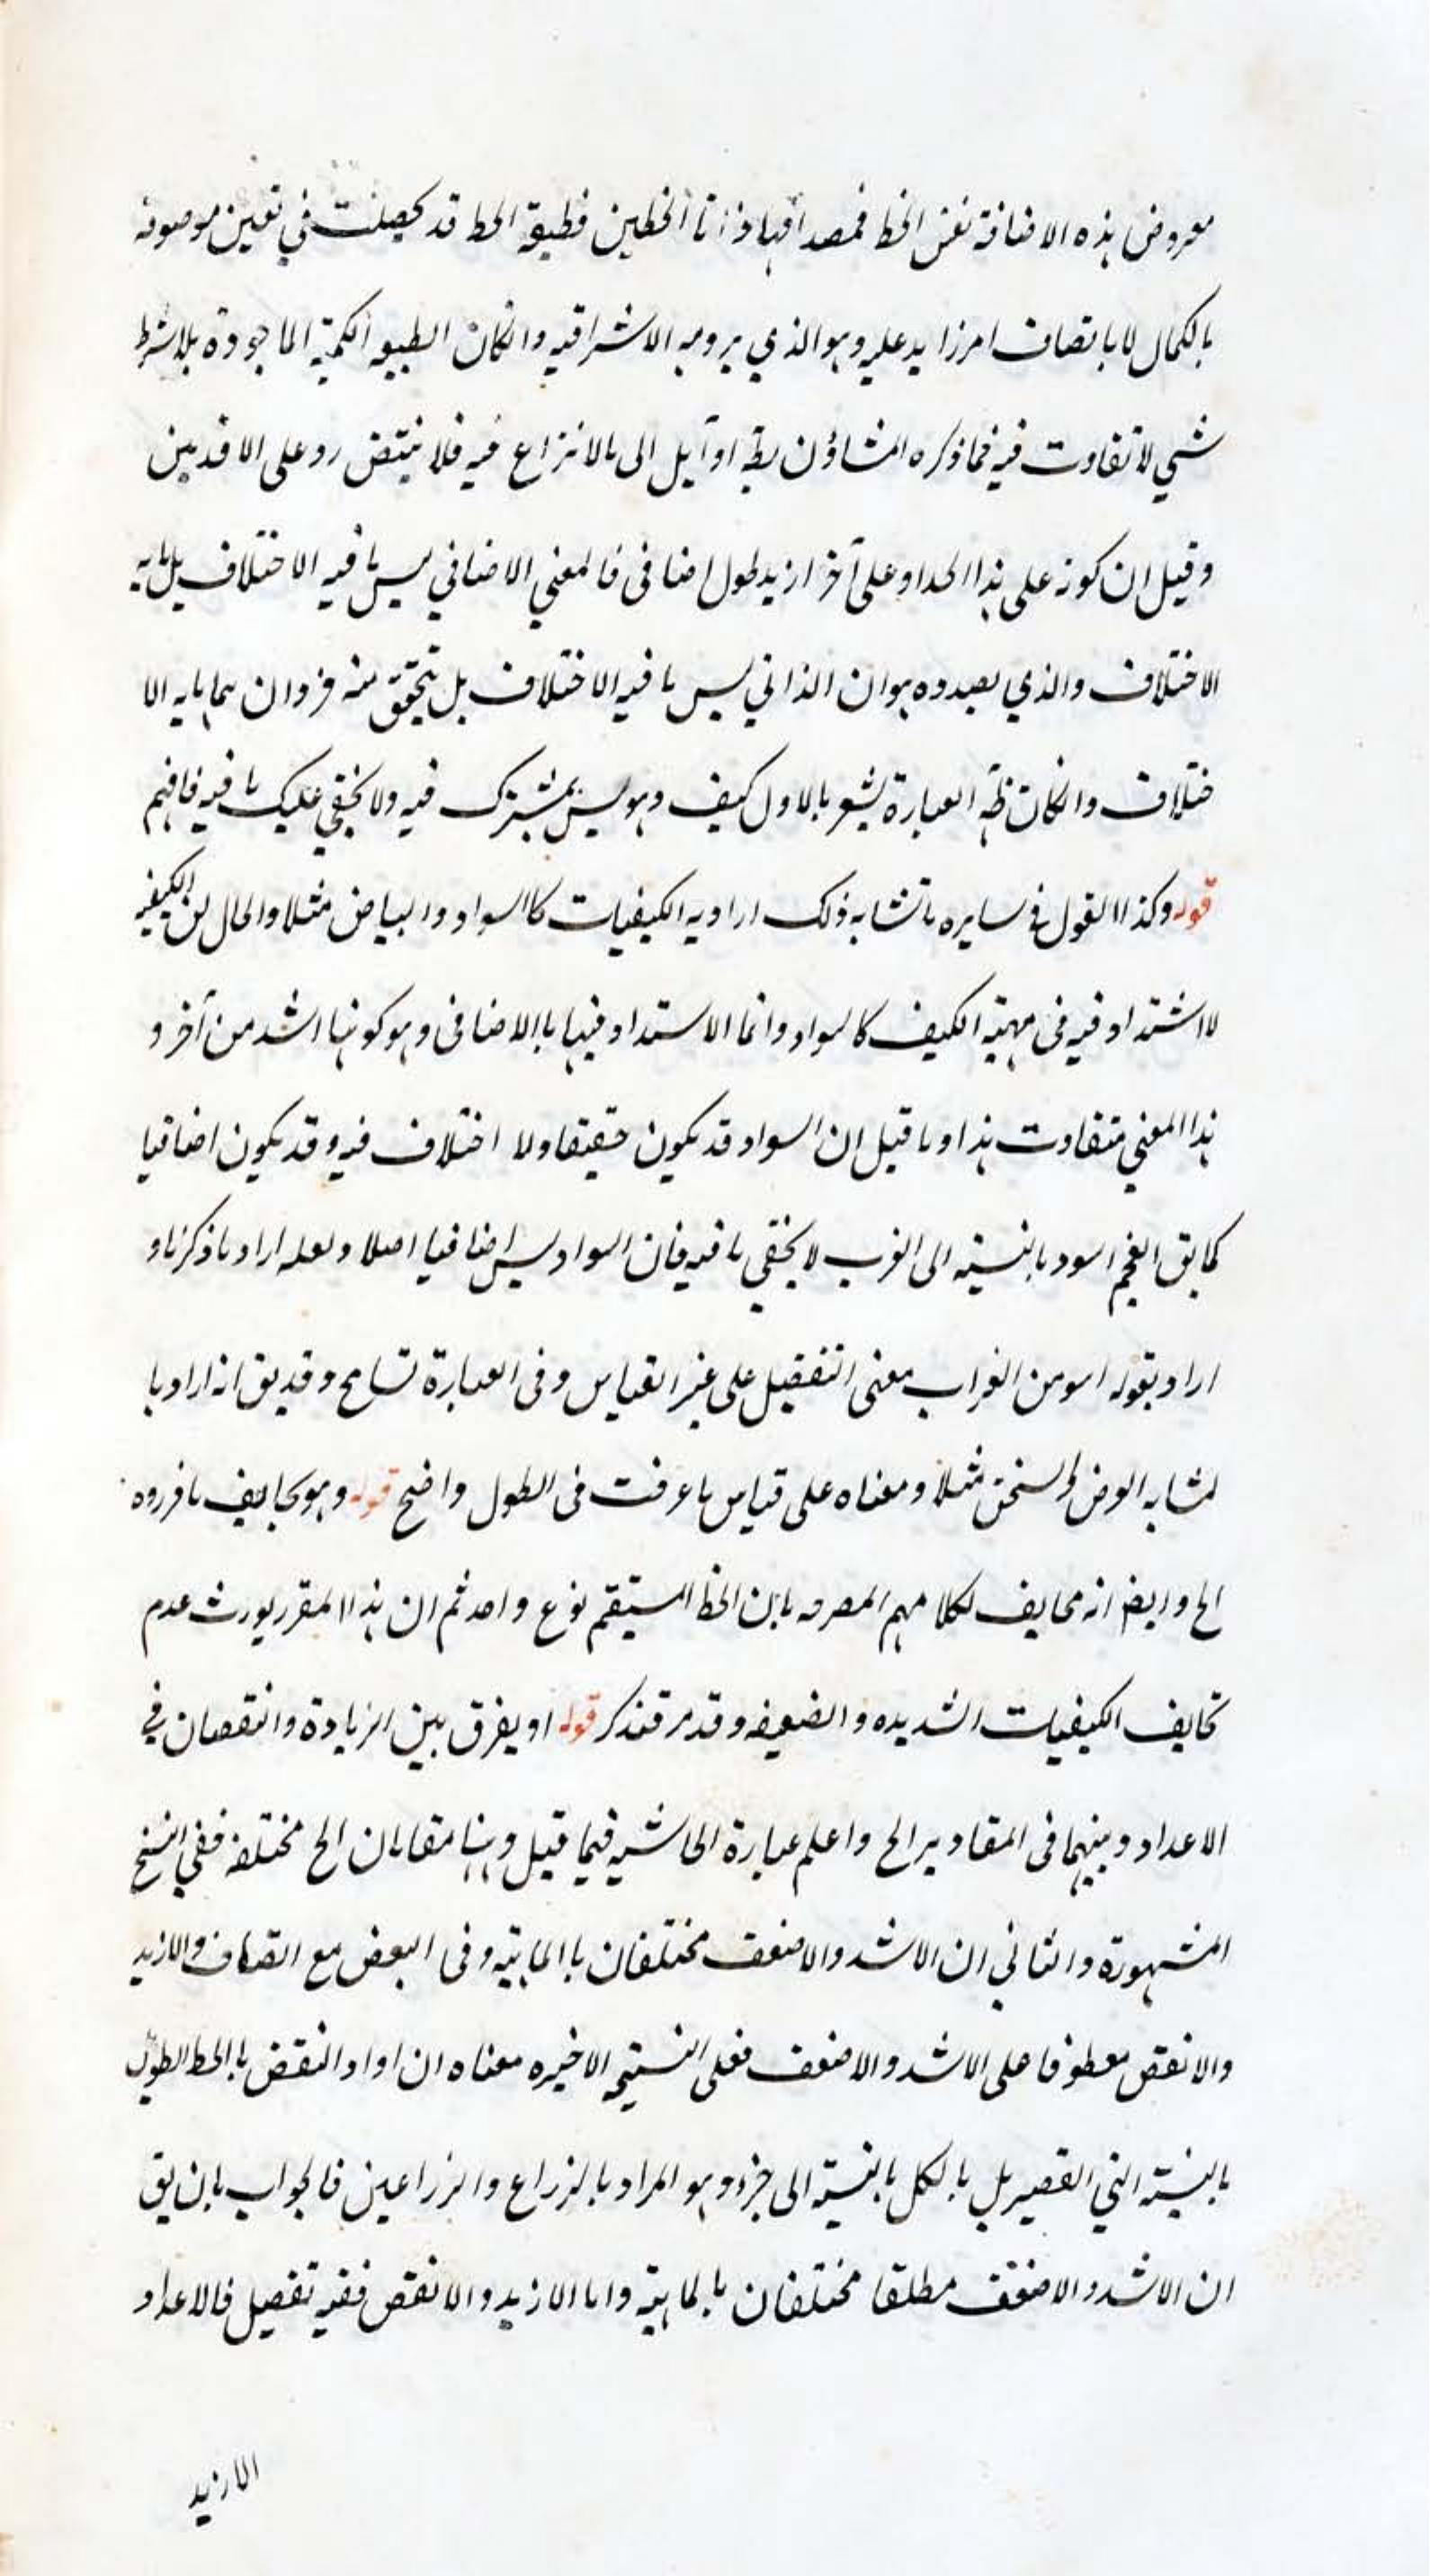 معروض هذه الاضافة نفس الخط فمصداقها ذاتا الخطين فطبيعة الخط قد يحصلت في تعين موصوفه
بالكمال لا باتصاف امر زايد عليه وهو الذي يرومه الاشراقيه وانكان الطبيعه الكمية الماخوذة بلا شرط
شي لا تفاوت فيه فما ذكره المشاؤن بط او آيل الى مالانزاع فيه فلا ينتهض رد على الاقدمين
وقيل ان كونه على هذا الحد او على آخر ازيد طول اضافى فالمعني الاضافي ليس ما فيه الاختلاف بل ما به
الاختلاف والذي بصدده هو ان الذاتي ليس ما فيه الاختلاف بل يتحقق منه فردان بهما ما به الا
ختلاف وانكان ظه العبارة يشعر بالاول كيف وهو ليس بمشترك فيه ولا يخفي عليك ما فيه فافهم
قوله وكذا القول فى سايره ما تشابه ذلك اراد به الكيفيات كاالسواد والبياض مثلا والحال ان الكيفيه
لا اشتداد فيه فى مهية الكيف كالسواد وانما الاستداد فيها باالاضافى وهو كونها اشد من آخر و
هذا المعني متفاوت هذا وما قيل ان السواد قد يكون حقيقا ولا اختلاف فيه وقد يكون اضافيا
كما يق الفحم اسود بالنسبة الى الغرب لا يخفي ما فيه فان السواد ليس اضافيا اصلا ولعله اراد ما ذكرنا و
اراد بقوله اسو من الغراب معنى التفضيل على غير القياس وفى العبارة تسامح وقد يق انه اراد با
لمشابه العرض والسخن مثلا ومعناه على قياس ما عرفت فى الطول واضح قوله وهو يخالف ما قرروه
الخ وايض انه مخالف لكلامهم المصرحه بان الخط المستقيم نوع واحد ثم ان هذا المقرر يورث عدم
تخالف الكيفيات الشديده والضعيفه وقد مر فتذكر قوله او يفرق بين الزيادة والنقصان في
الاعداد وبينهما فى المقادير الخ واعلم عبارة الحاشيه فيما قيل وهنا مقامان الخ مختلفه ففي النسخ
المشهورة والثاني ان الاشد والاضعف مختلفان باالماهية وفى البعض مع اتصاف والازيد
والانقص معطوفا على الاشد والاضعف فعلى النسخه الاخيره معناه ان اواد النقض باالخط الطويل
بالنسبة الي القصير بل بالكل بالنسبة الى جزء وهو المراد بالذراع والذراعين فالجواب بان يق
ان الاشد والاضعف مطلقا مختلفان بالماهية واما الازيد والانقص ففيه تفصيل فالاعداد
الازيد